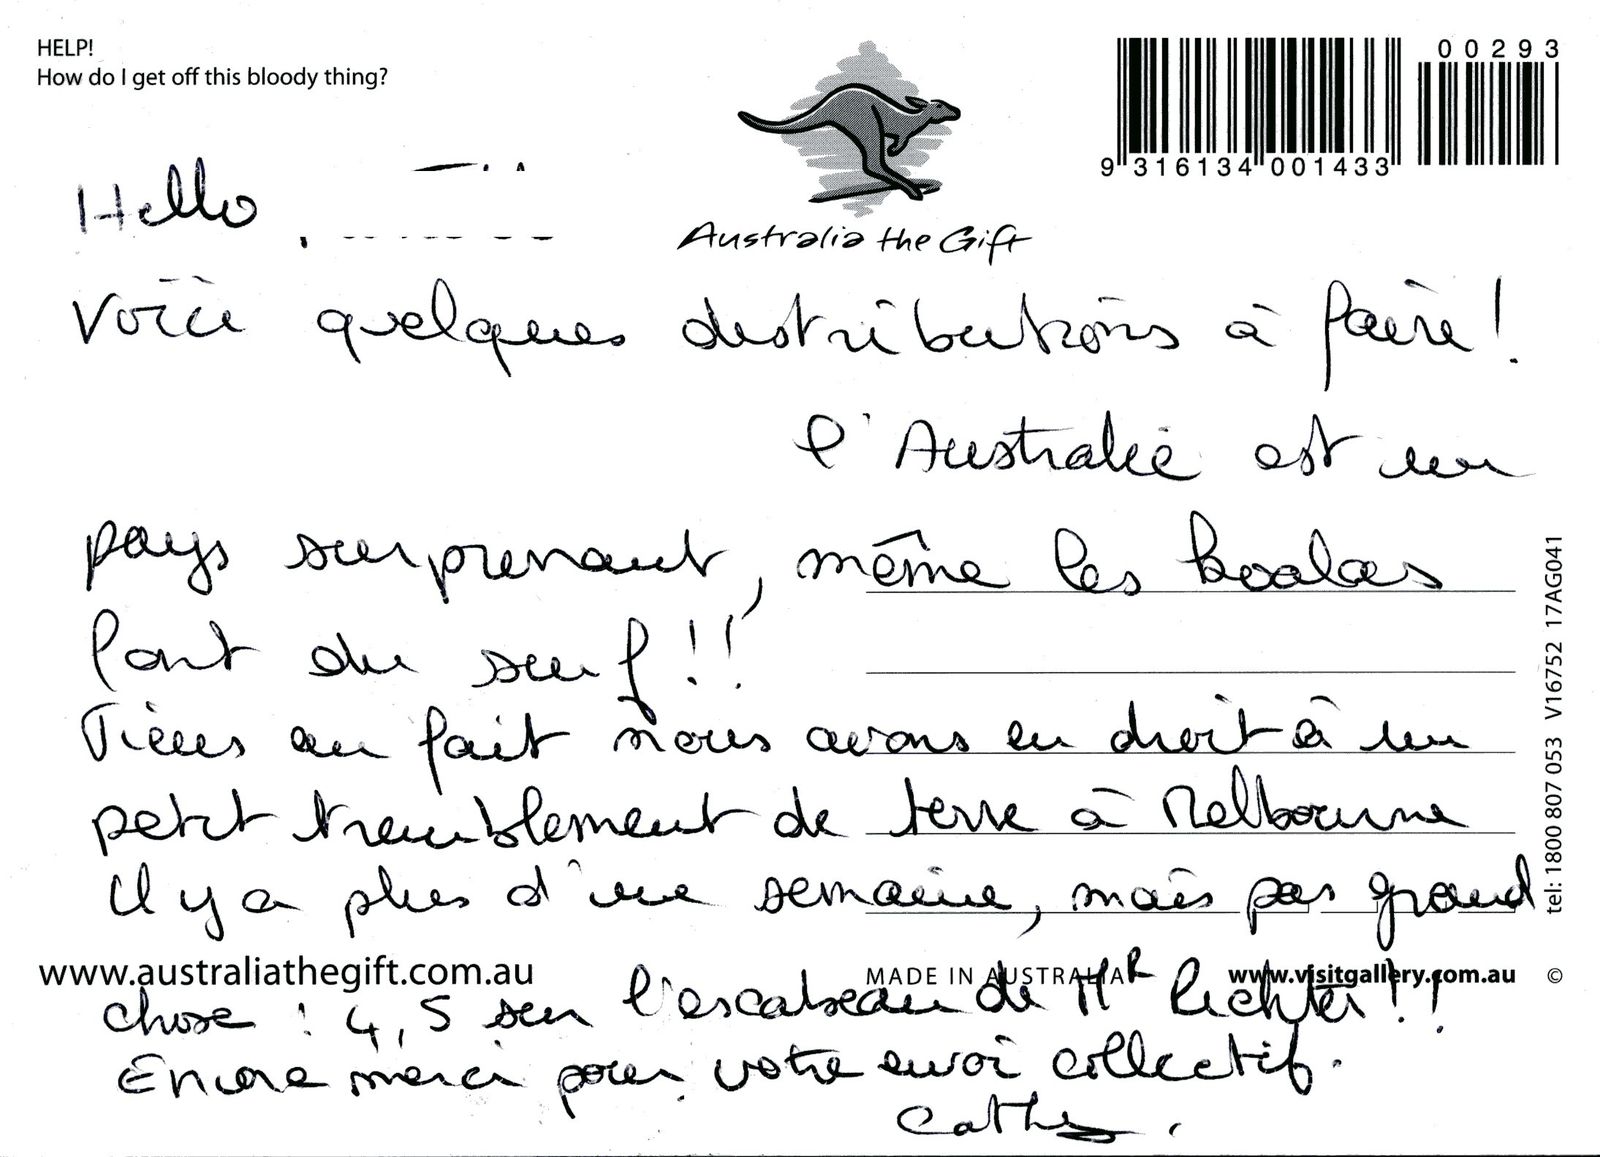 HELP!
How do I get off this bloody thing?
00293
9 316134 001433
Australia the Gift
Hello
Voici quelques distributions à faire !
l'Australie est un
pays surprenant, même les koalas
font du surf !!
Tiens au fait nous avons eu droit à un
petit tremblement de terre à Melbourne
Il y a plus d'une semaine, mais pas grand
chose : 4,5 sur l'escabeau de Mr Richter !!
Encore merci pour votre envoi collectif.
Cathy.
www.australiathegift.com.au
MADE IN AUSTRALIA
www.visitgallery.com.au ©
tel: 1800 807 053 V16752 17AG041